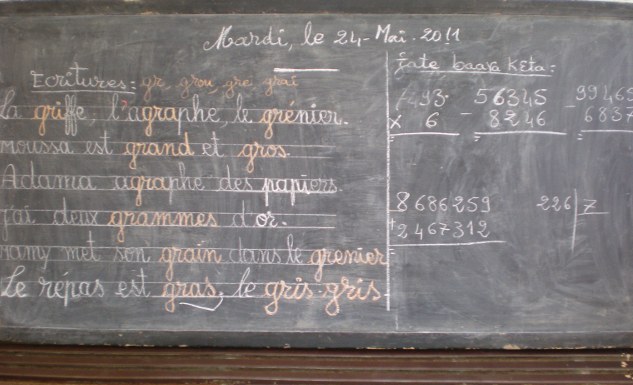 Mardi, le 24-Mai-2011
Ecritures: gr grou, gre grai
La griffe, l'agraphe, le grénier.
moussa est grand et gros.
Adama agraphe des papiers.
j'ai deux grammes d'or.
ramy met son grain dans le grenier
Le répas est gras, le gris-gris
baara kɛta:
493
x 6
56345
- 8246
99465
- 6837
8686259
+ 2467312
226 7